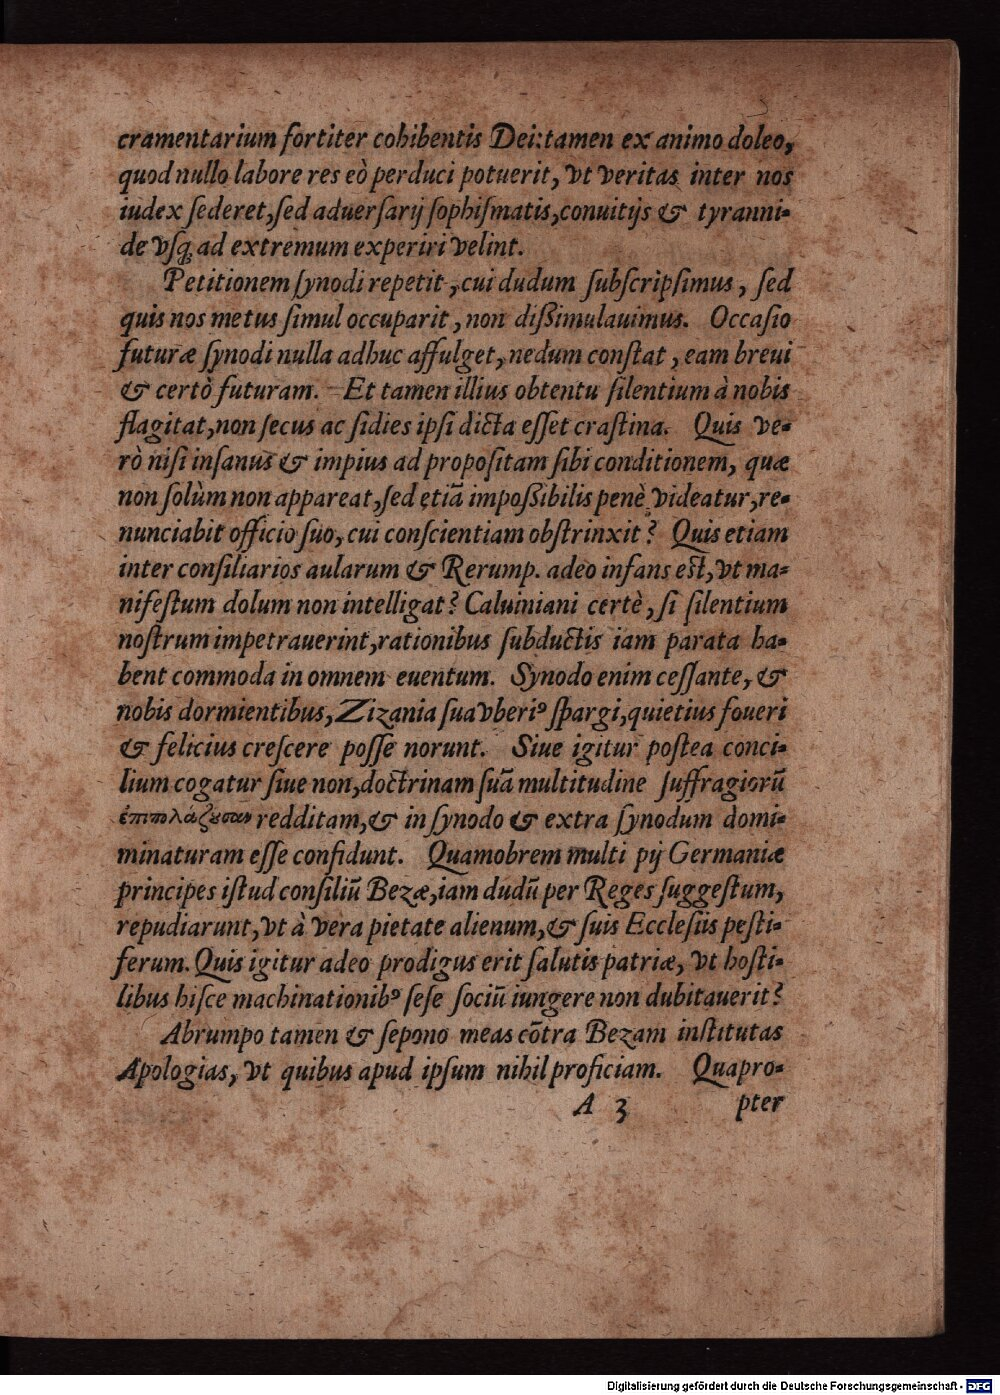 cramentarium fortiter cohibentis Dei: tamen ex animo doleo,
quod nullo labore res eò perduci potuerit, vt veritas inter nos
iudex ſederet, ſed aduerſarij ſophiſmatis, conuitijs & tyranni-
de vſq; ad extremum experiri velint.
Petitionem ſynodi repetit, cui dudum ſubſcripſimus, ſed
quis nos metus ſimul occuparit, non dißimulauimus. Occaſio
futuræ ſynodi nulla adhuc affulget, nedum conſtat, eam breui
& certò futuram. Et tamen illius obtentu ſilentium à nobis
flagitat, non ſecus ac ſi dies ipſi dicta eſſet craſtina. Quis ve-
rò niſi inſanus & impius ad propoſitam ſibi conditionem, quæ
non ſolùm non appareat, ſed etiã impoßibilis penè videatur, re-
nunciabit officio ſuo, cui conſcientiam obſtrinxit? Quis etiam
inter conſiliarios aularum & Rerump. adeo infans eſt, vt ma-
nifeſtum dolum non intelligat? Caluiniani certè, ſi ſilentium
noſtrum impetrauerint, rationibus ſubductis iam parata ha-
bent commoda in omnem euentum. Synodo enim ceſſante, &
nobis dormientibus, Zizania ſua vberiꝰ ſpargi, quietius foueri
& felicius creſcere poſſe norunt. Siue igitur poſtea conci-
lium cogatur ſiue non, doctrinam ſuã multitudine ſuffragiorũ
ἐπιπολάζουσαν redditam, & in ſynodo & extra ſynodum domi-
minaturam eſſe confidunt. Quamobrem multi pij Germaniæ
principes iſtud conſiliũ Bezæ, iam dudũ per Reges ſuggeſtum,
repudiarunt, vt à vera pietate alienum, & ſuis Eccleſiis peſti-
ferum. Quis igitur adeo prodigus erit ſalutis patriæ, vt hoſti-
libus hiſce machinationibꝰ ſeſe ſociũ iungere non dubitauerit?
Abrumpo tamen & ſepono meas cõtra Bezam inſtitutas
Apologias, vt quibus apud ipſum nihil proficiam. Quapro-
A 3 pter
Digitalisierung gefördert durch die Deutsche Forschungsgemeinschaft - DFG